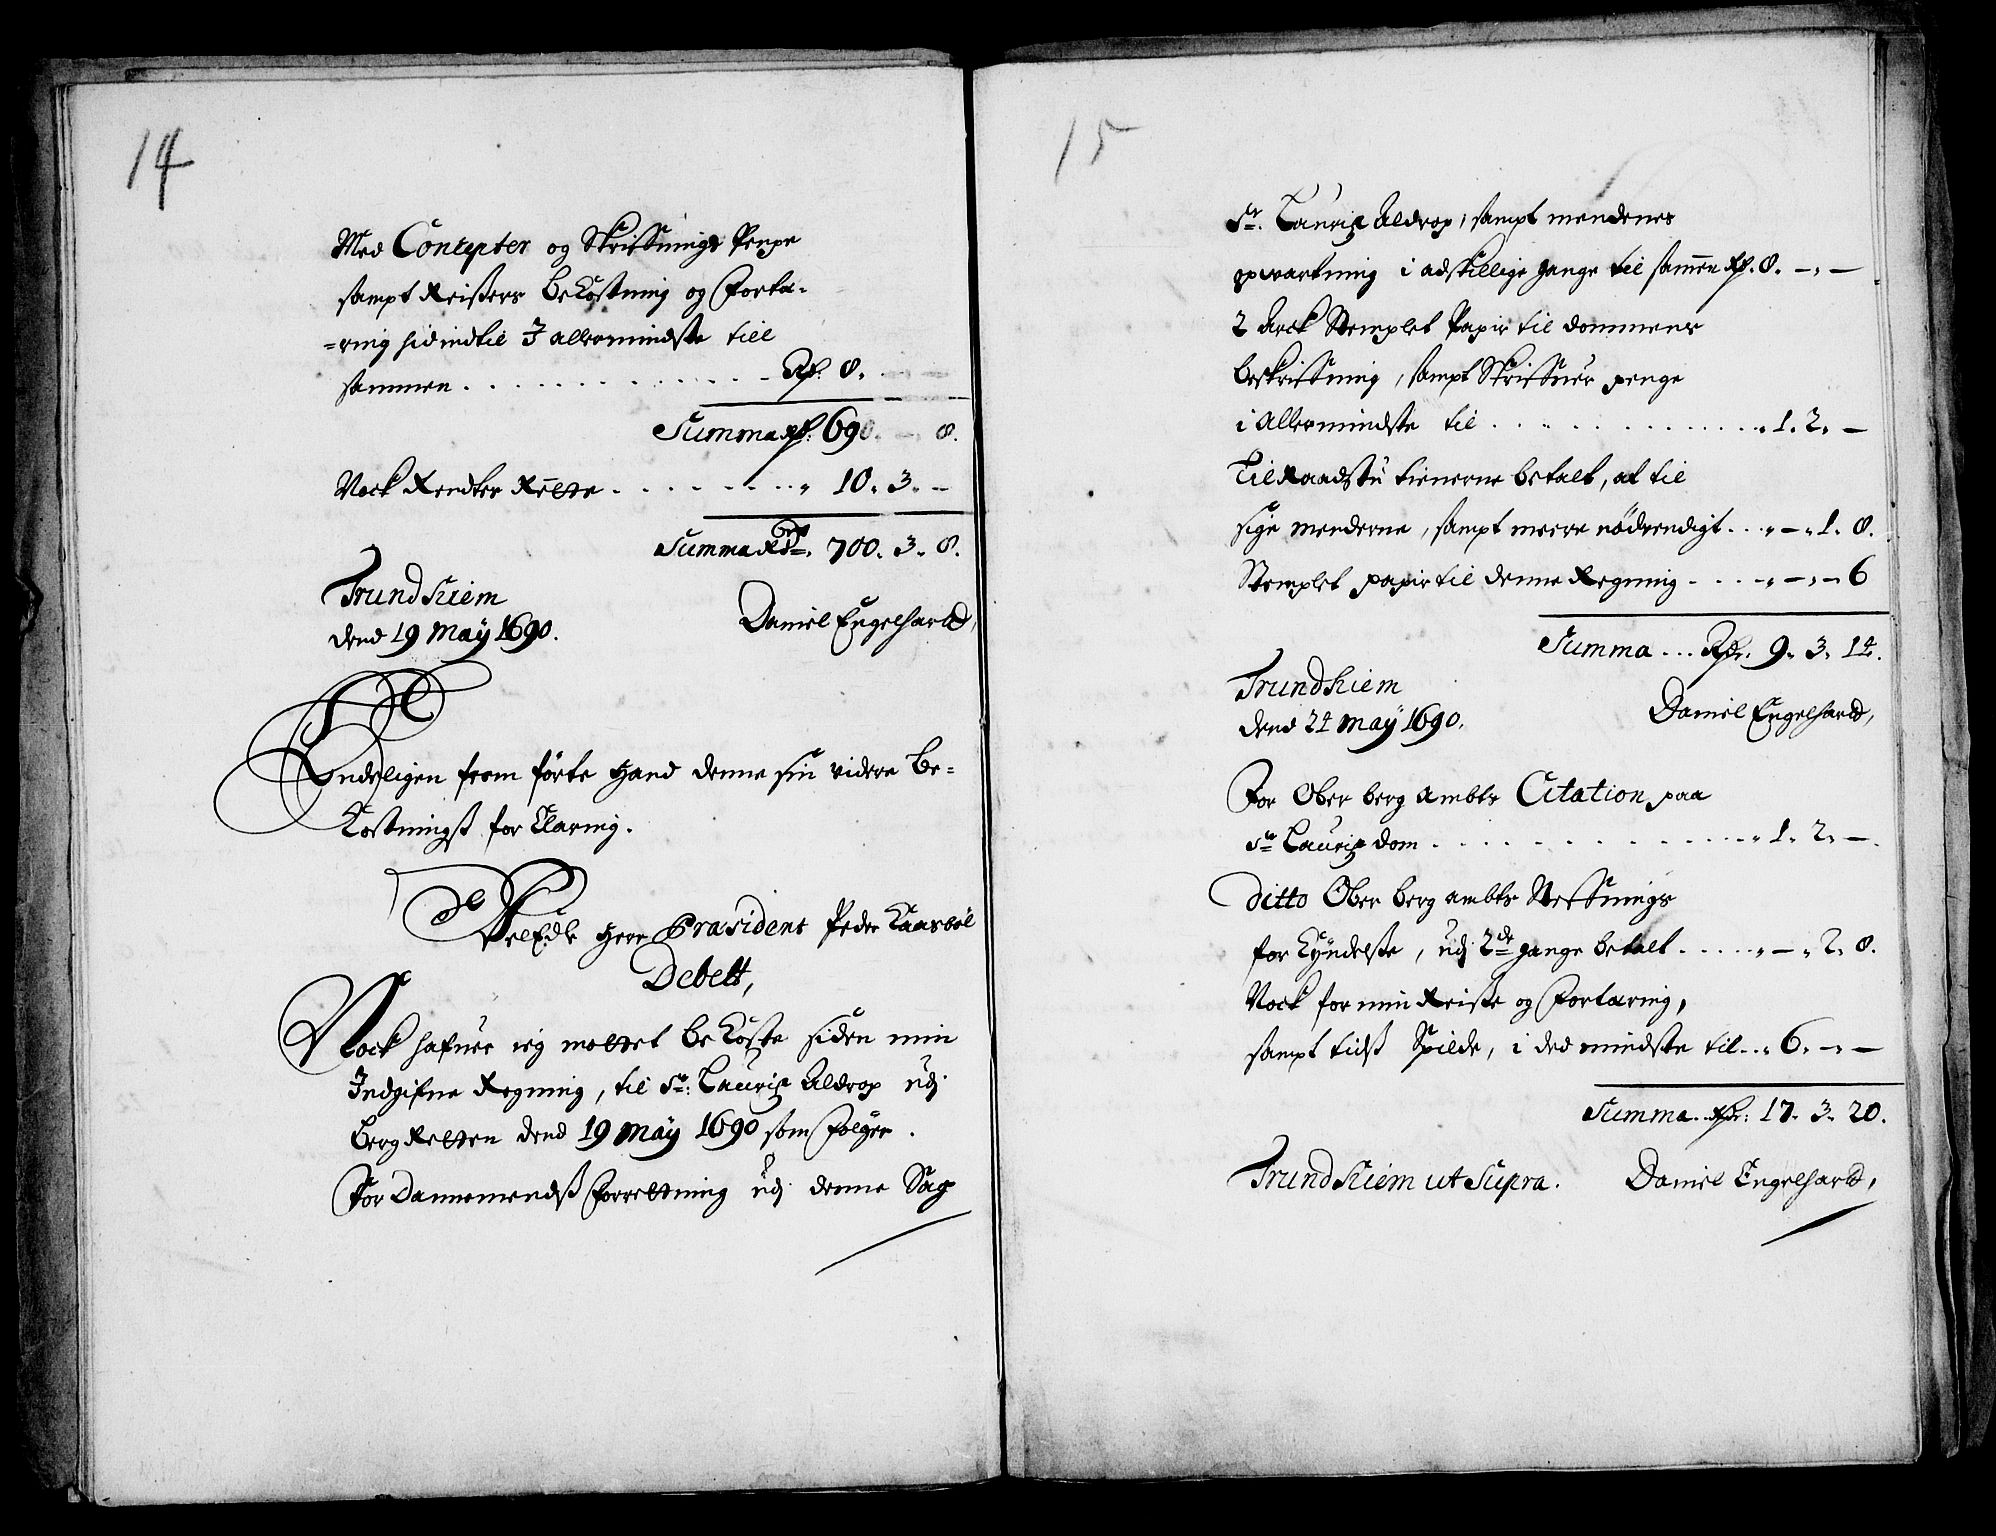 14
Med Contepter og Skrifvnings Penge
sampt Reisers Bekostning og Forta-
-ring hid indtil I allermindste till
sammen . . . . . . . . . . . . . Rd. 8. — —
Summa Rd. 690. —. 8.
Nock Rendter Rette . . . . . . . . „ 10. 3. —
Summa Rdr. 700. 3. 8.
Trundhiem
dend 19 Maÿ 1690.
Daniel Engelhardt,
Endeligen from förte hand denne sin videre Be-
Kostningß forklaring.
VelEdle Herr Præsident Peder Kaasböl
Debett,
Nock hafuer ieg mottet bekoste siden min
Indgifne Regning, til Sr: Lauris Aldrop udj
BergRetten dend 19 Maÿ 1690 som følger.
For Dannemendß Forretning udj denne Sag
15
Sr. Lauris Aldrop, sampt mendenes
opvartning i adskillige gange til sammen Rd. 8. —. —
2 Arck Stemplet Papir til dommens
beskrifvning, sampt Skrifuer penge
i Allermindste til . . . . . . . . . . . . . „ 1. 2. —
Til Raadstu tienerne betalt, at til
sige menderne, sampt meere nödvendigt . . . „ —. 1. 8.
Stemplet papir til denne Regning - . . . „ —. — 6
Summa . . . Rdr. 9. 3. 14.
Trundhiem
dend 24 Maÿ 1690.
Daniel Engelhardt,
For Ober berg Ambts Citation paa
Sr Lauris dom . . . . . . . . . . . . . „ 1. 2. —.
Ditto Ober berg ambts Steffnings
forkÿndelse, udj 2de gange betalt . . . . . „ —. 2. 8.
Nock for min Reise og Fortæring,
sampt tidß Spilde, i ded mindste til . . „ 6. —. —
Summa . . Rdr: 17. 3. 20.
Trundhiem ut Supra. Daniel Engelhardt,